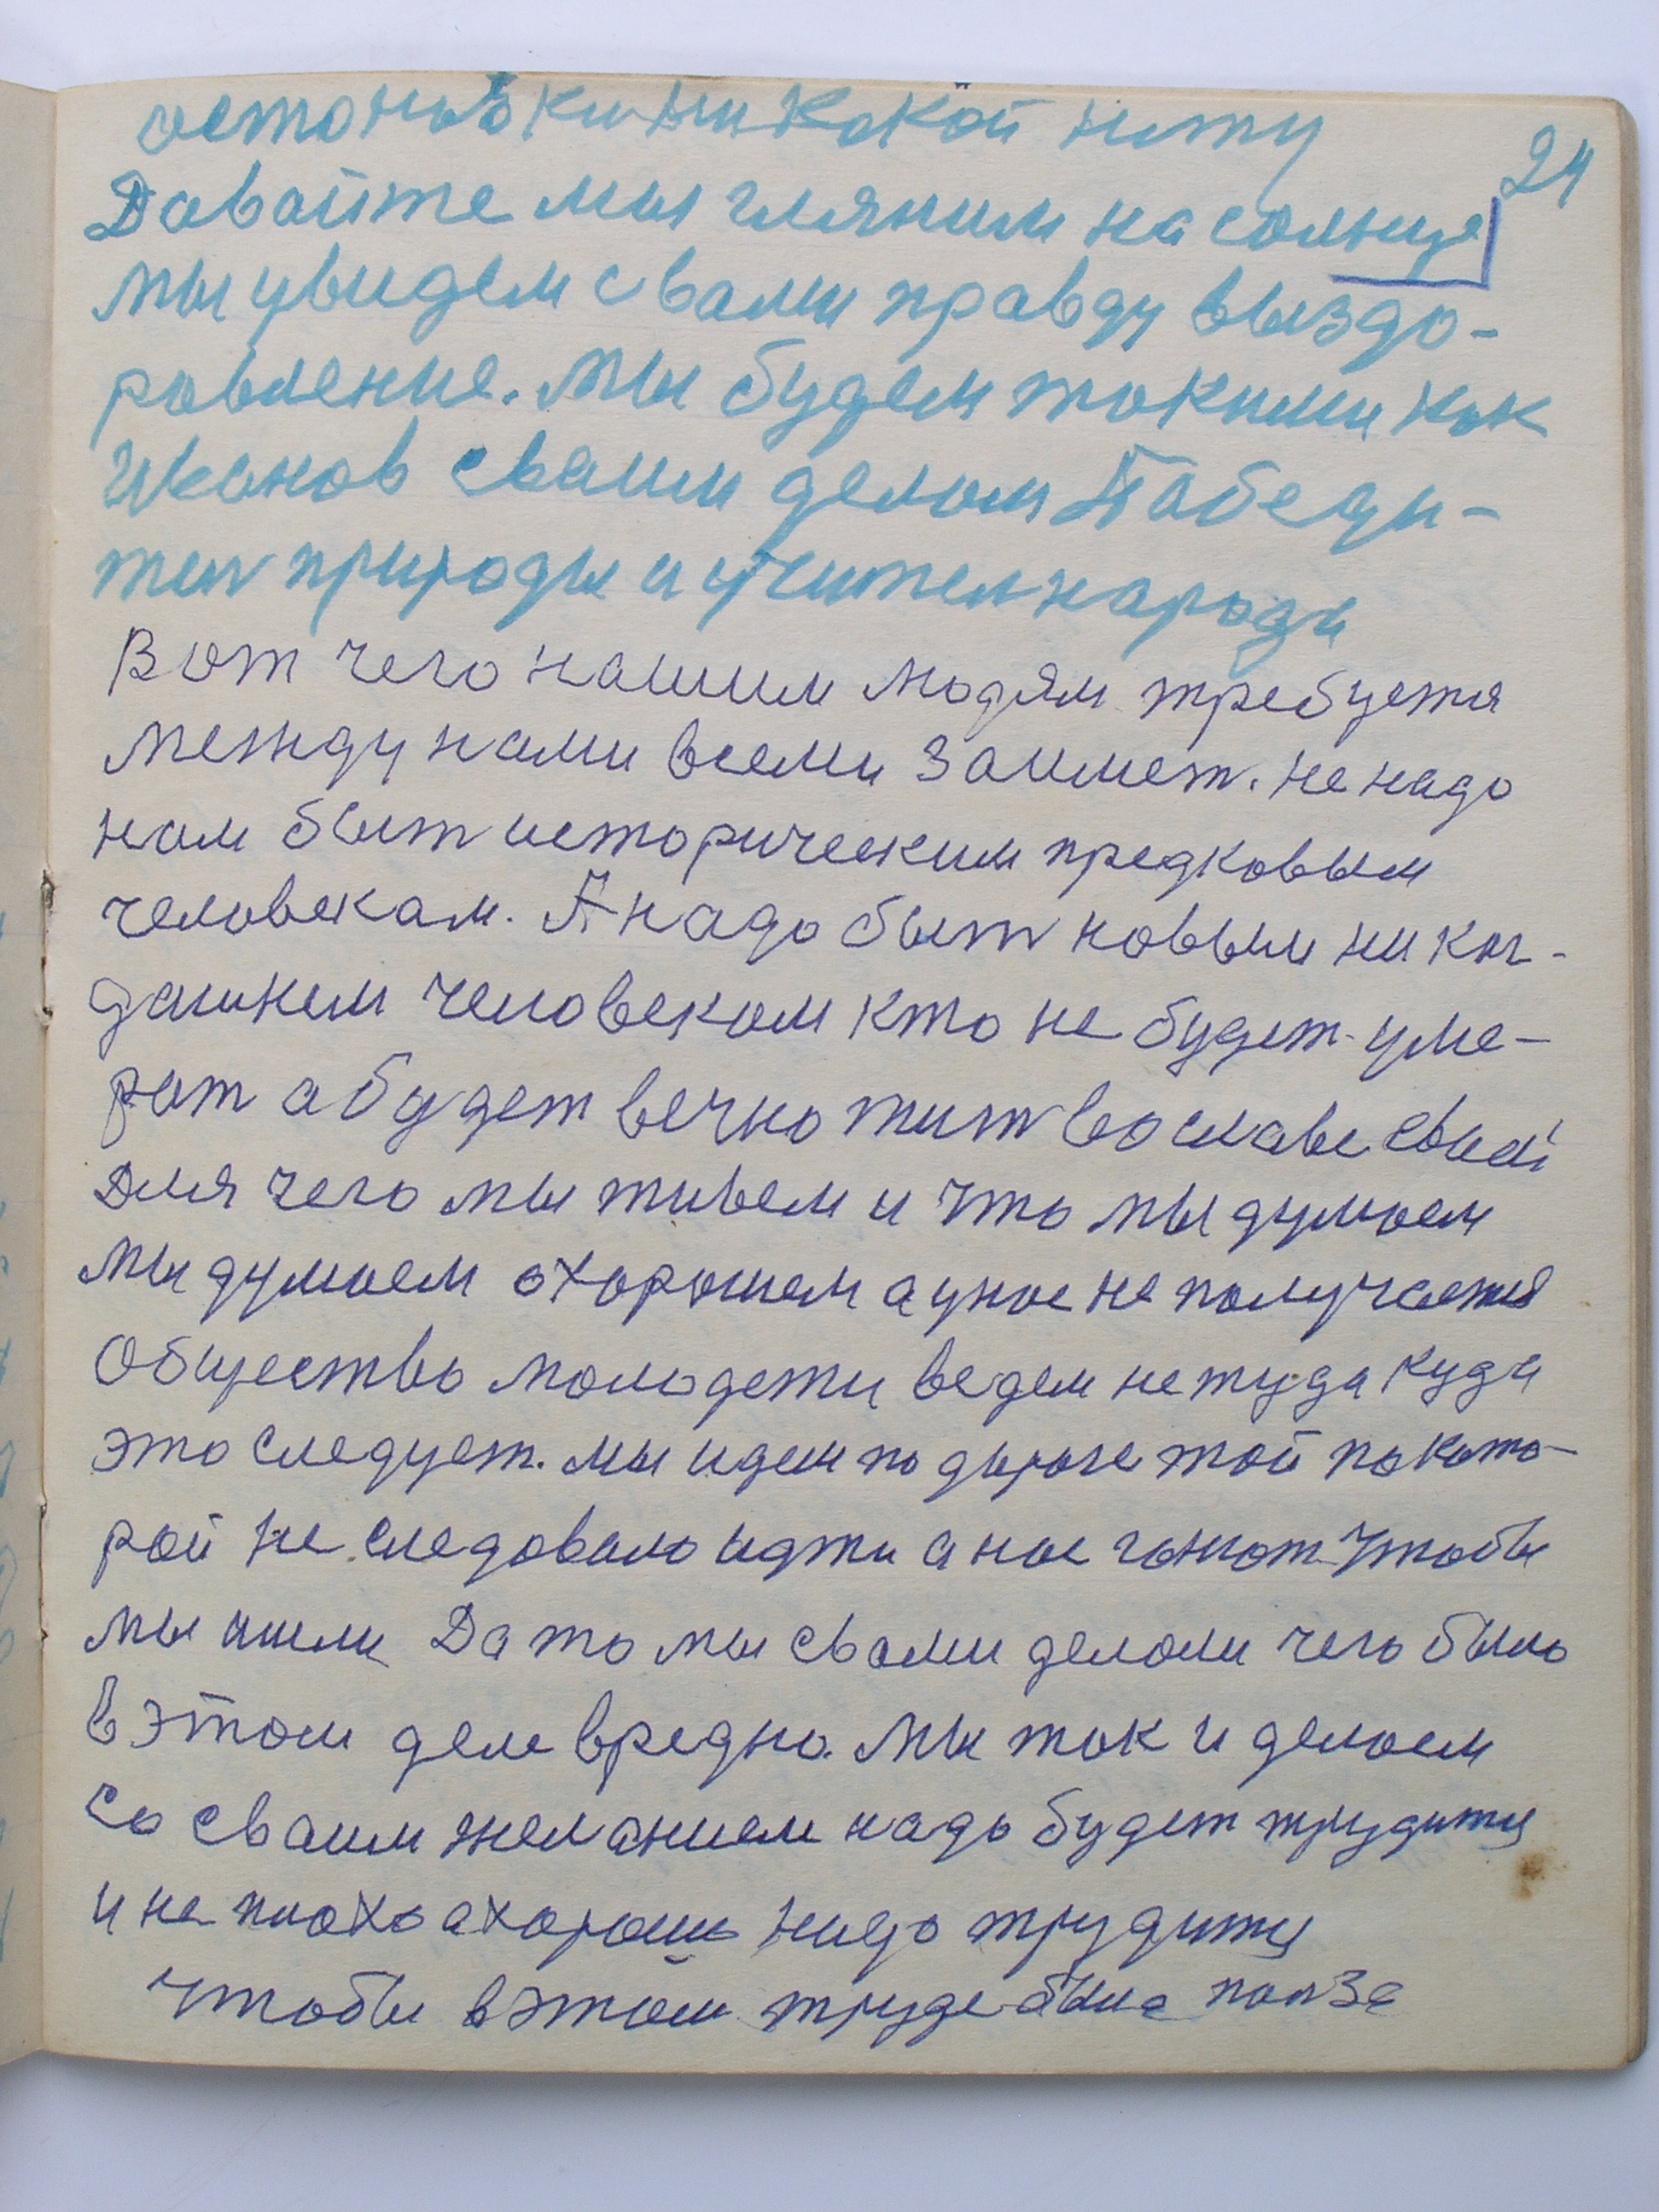 остоновки никокой нету
24
Давайте мы гляним на солнце
мы увидем с вами правду выздо-
ровление. Мы будем токими как
Иванов сваим делом Победи-
тел природы и учител народа
Вот чего нашим людям требуется
между нами всеми займет. не надо
нам быт историческим предковым
человекам. А надо быт новым никог-
дашнем человеком кто не будет уме-
рат а будет вечно жит во славе сваей
Для чего мы живем и что мы думаем
мы думаем о хорошем а у нас не получается
Общество молодежи ведем не туда куда
это следует. мы идем по дороге той по кото-
рой не следовало идти а нас гонют чтобы
мы шли Да то мы с вами делали чего было
в этом деле вредно. Мы так и делаем
со сваим желанием надо будет трудится
и не плохо а хорошо надо трудится
чтобы в этом труде была полза